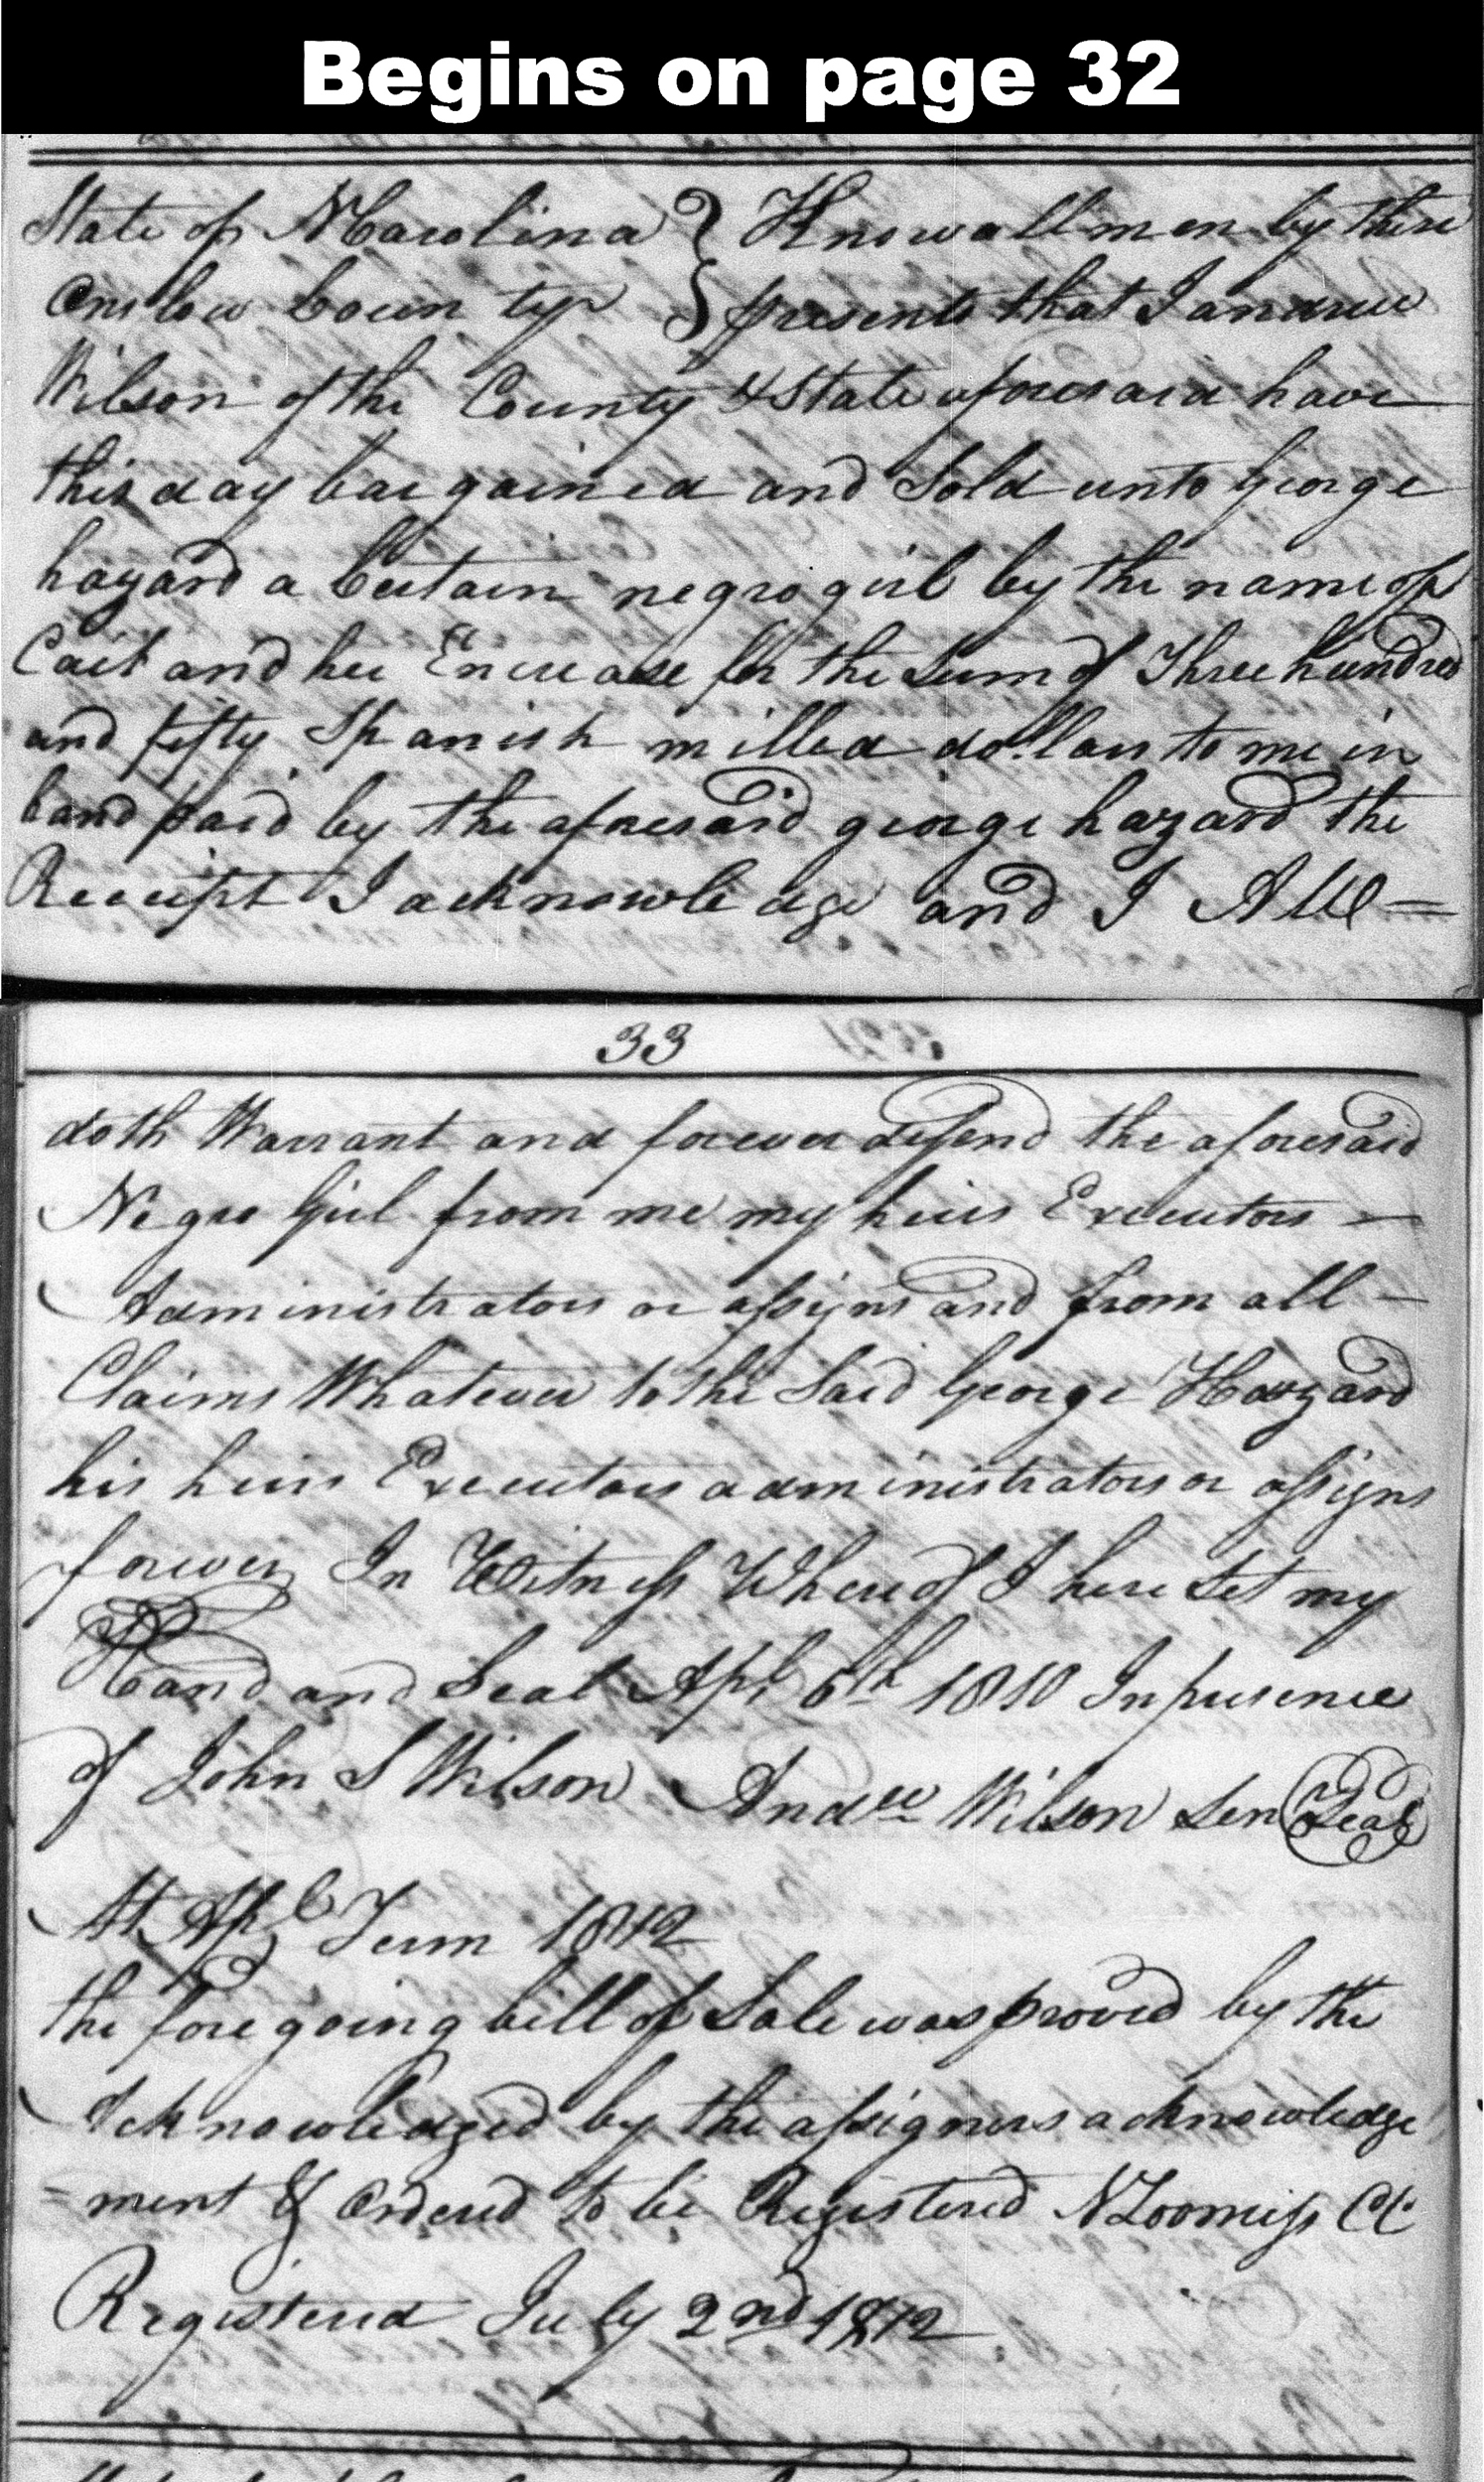 Begins on page 32
State of N Carolina } Know all men by these
Onslow County } presents that I andrew
Wilson of the County & State aforesaid have
this day bargained and Sold unto George
hazard a Certain negro girl by the name of
Cait and her Encrease for the Sum of Three hundred
and fifty Spanish milled dollars to me in
hand paid by the aforesaid george hazard the
Receipt I acknowledge and I
33
doth Warrant and forever defend the aforesaid
Negro Girl from me my heirs Executors —
Administrators or assigns and from all —
Claims Whatever to the Said George Hazzard
his heirs Executors administrators or assigns
forever In Witness Whereof I here Set my
Hand and Seal Apl 6th 1810 In presence
of John S Wilson Andw Wilson Sen Seal
At Apl Term 1812
the fore going bill of Sale was proved by the
Acknowledged by the assigners acknowledge
=ment & Ordered to be Registered N Loomiss CC
Registered July 2nd 1812